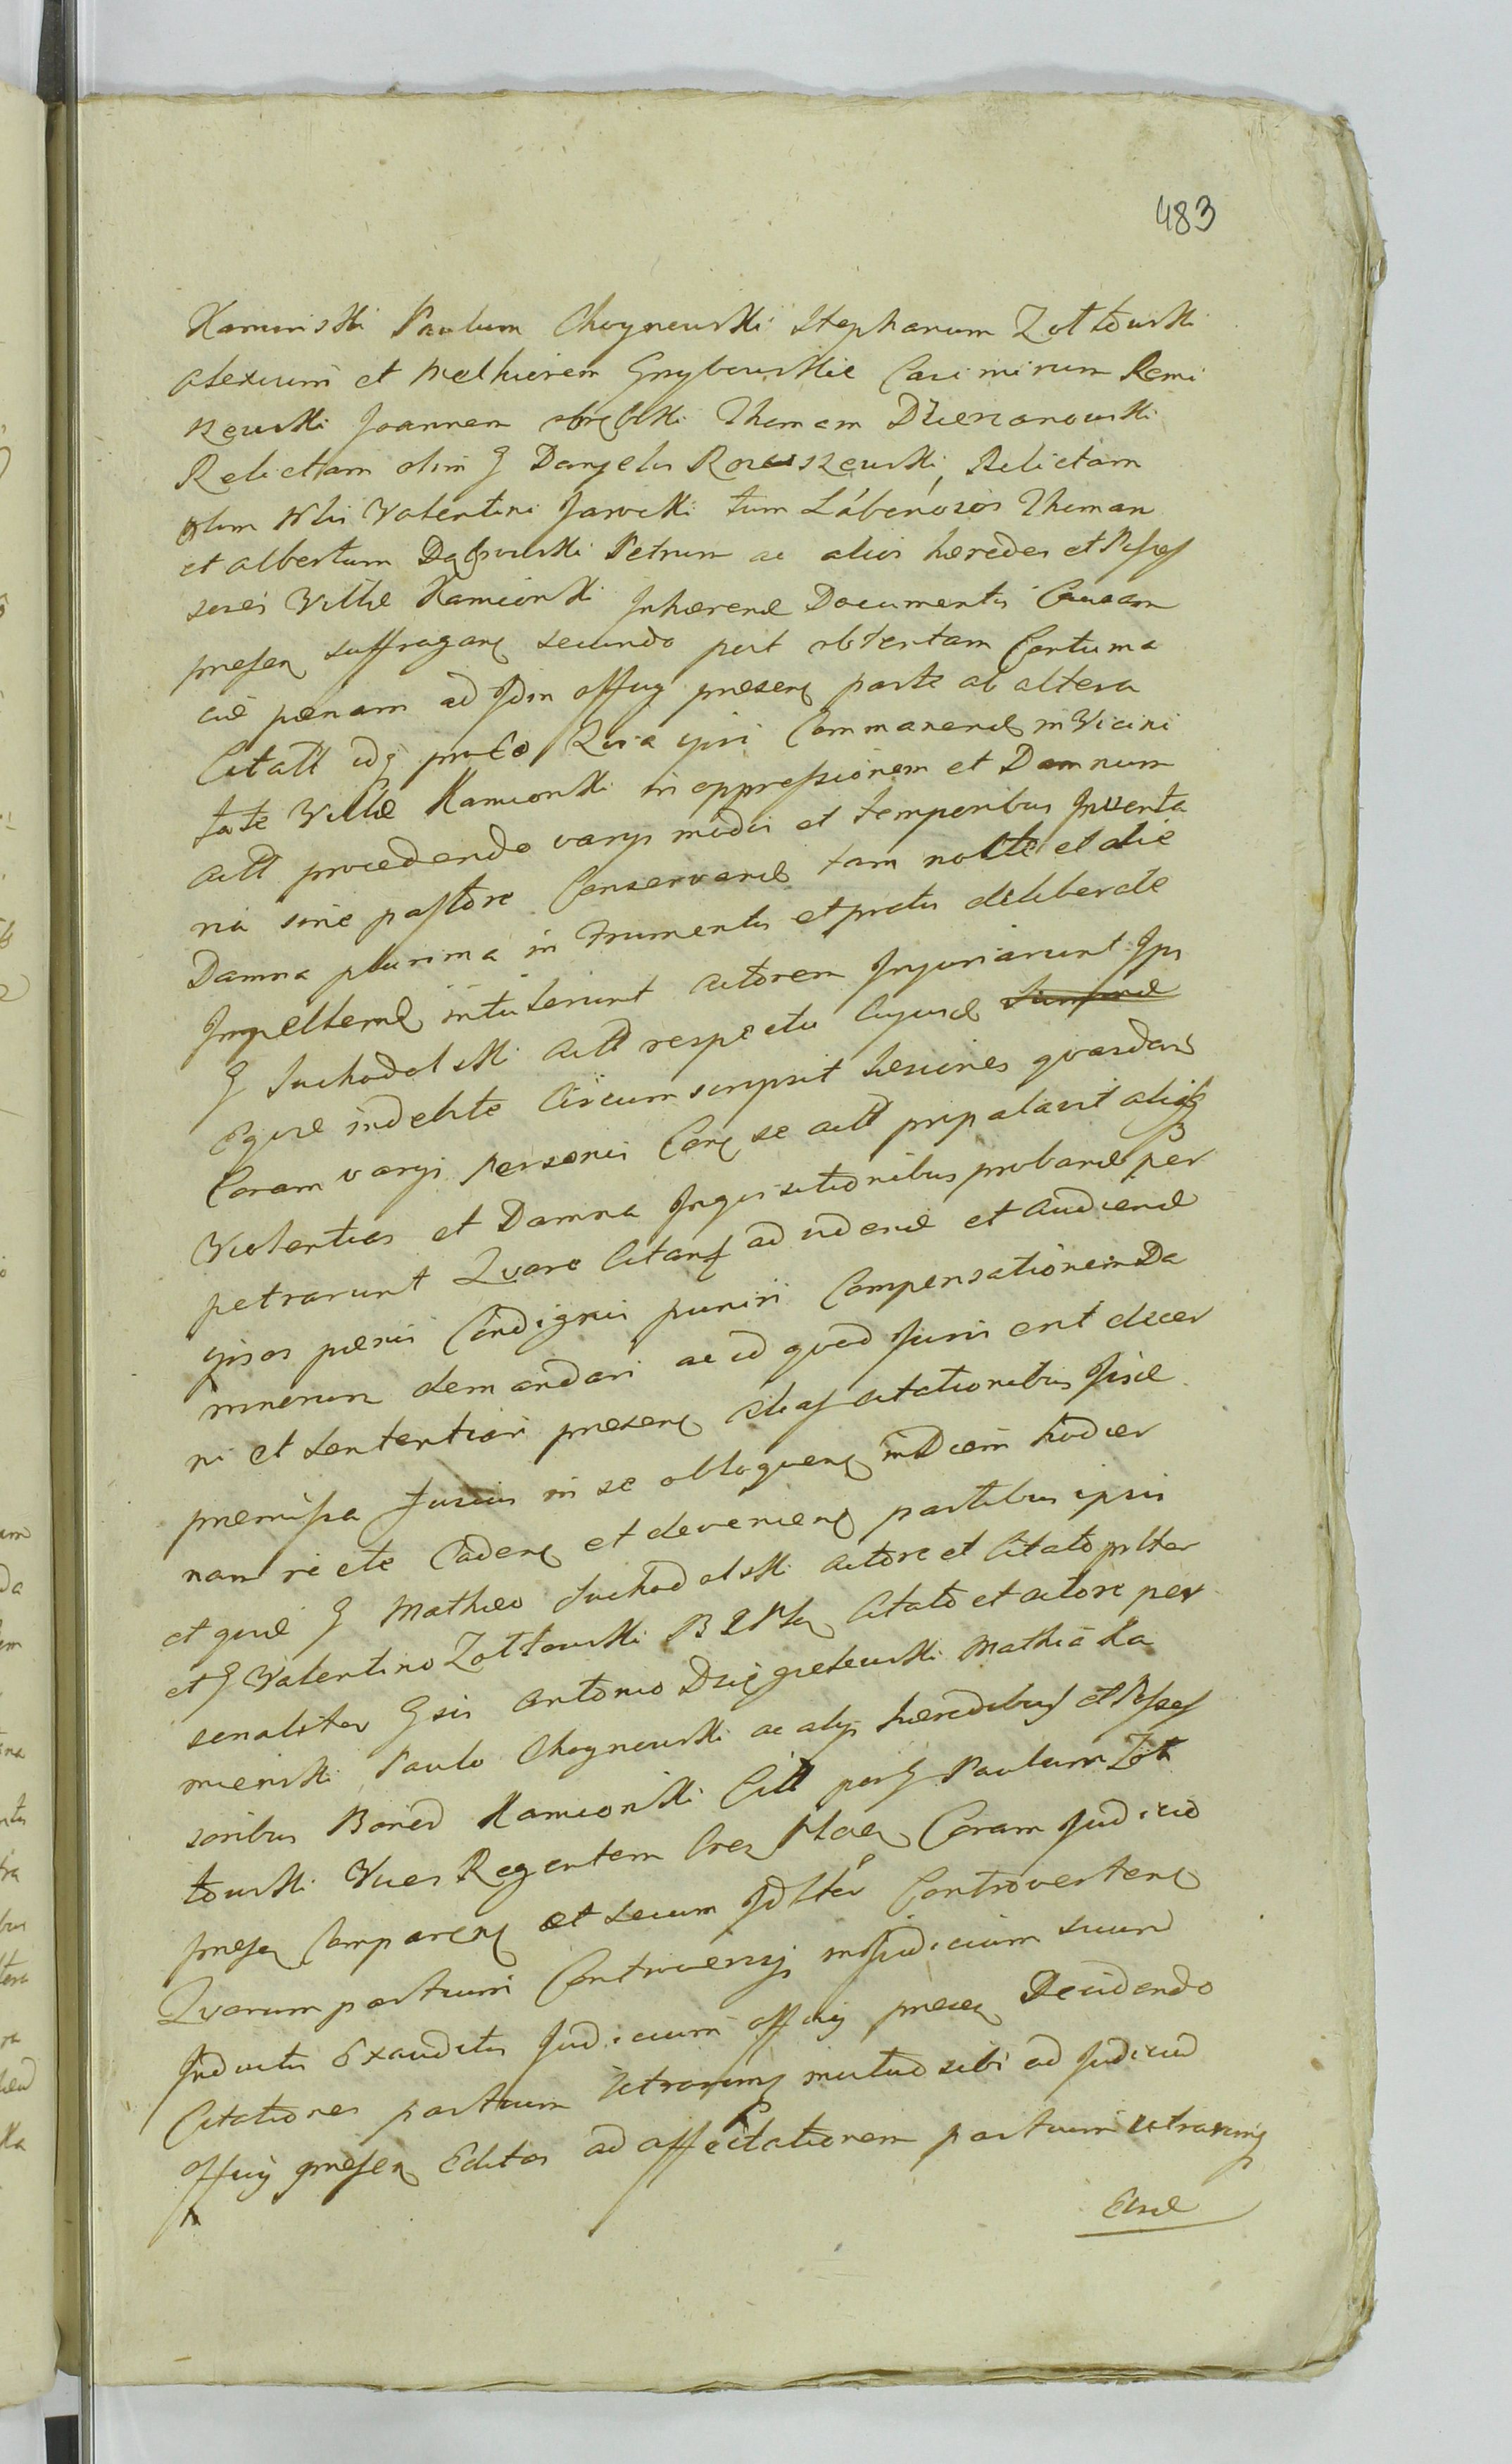 483
Kaminski Paulum Choynowski Stephanum Zołtowski
Alexium et Melhiorem Grzybowskie Casimirum Remi
szewski Joannem Thomam Dzierzanowski
Relictam olim G Danyelis Rosciszewski, Relictam
olim Nlis Valentini Jarocki tum Laboriosos Thomam
et Albertum Dąbrowski Petrum ac alios hæredes et Posses
sores Villæ Kamionki Inhærend Documentis Causam
presen suffragan secundo post obtentam Contuma
ciæ pænam ad Idm offcy præsens parte ab altera
Citatt idq pro eo Quia ipsi Commanend in Vicini
tate Villæ Kamionki in oppressionem et Damnum
Actt procedendo varys modis et temporibus Juventa
ria sine pastore Conservand tam nocte et die
Damna plurima in Frumentis et pratis deliberate
Impellend intulerunt Actorem Injuriarunt Ips
G Suchodolski Actt respectu Cujusd
Equæ indebite Circumscripsit Lesiones quasdam
Coram varys personis Con se Actt propalavit aliasq
Violentias et Damna Inquisitionibus proband per
petrarunt Quare Citant ad vidend et Audiend
ipsos pænis Condignis puniri Compensationem Da
mnorum demandari ac id quod Juris erit decer
ni et sententiari præsens Alias Citationibus Jisd
premissa fusius in se obloquen in Diem hodier
nam rite Caden et devenien partibus ipsis
et quid G Matheo Suchodolski Actore et Citato prlter
et G Valentino Zołtowski B Citato et Actore per
sonaliter Gsis Antonio Dzięgielewski Mathia Ka
mienski, Paulo Choynowski ac alys hæredibus et Posses
soribus Bonor Kamionki Citt per G Paulum Zoł
towski Vices Regentem Coram Judicio
presen Comparen et secum Jdlter Controverten
Quarum partium Controversys in Judicium suum
Inductis Exauditis Judicium offcij presen Decidendo
Citationes partium utrarumq mutuo sibi ad Judiciu
offcij presen Editas ad affectationem partium utrarumq
Easd